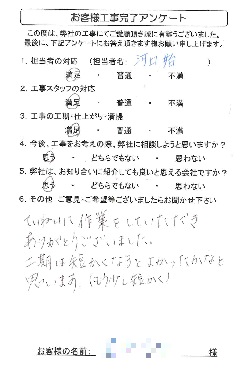 お客様工事完了アンケート
この度は、弊社の工事にてご愛顧頂き誠に有難うございました。
最後に、下記アンケートにお答え頂きます様お願い申し上げます。
1. 担当者の対応 (担当者名 )
満足 ・ 普通 ・ 不満
2. 工事スタッフの対応
満足 ・ 普通 ・ 不満
3. 工事の工期・仕上がり・清掃
満足 ・ 普通 ・ 不満
4. 今後、工事をお考えの際、弊社に相談しようと思いますか?
思う ・ どちらでもない ・ 思わない
5. 弊社は、お知り合いに紹介しても良いと思える会社ですか?
思う ・ どちらでもない ・ 思わない
6. その他 ご意見・ご希望等ございましたらお聞かせ下さい
ていねいに作業をしていただき
ありがとうございました。
工期は短かくなるとよかったかなと
思います (もう少し短かく)
お客様の名前: 様